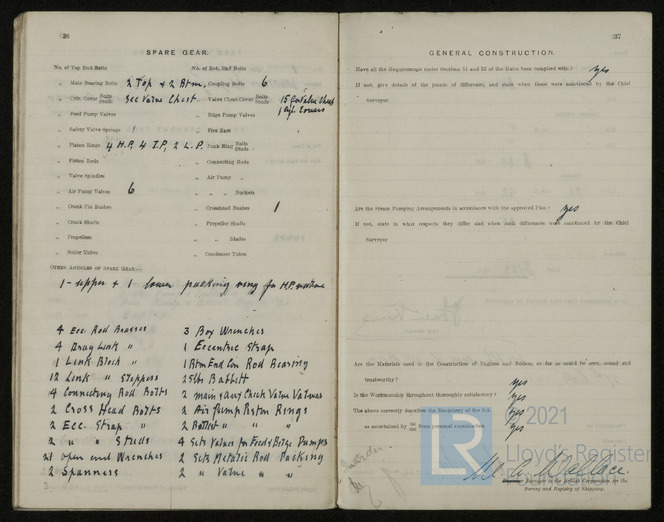 36
SPARE GEAR.
No. of Top End Bolts No. of Bot. End Bolts
„ Main Bearing Bolts 2 Top + 2 Btm. Coupling Bolts 6
„ Cylr. Cover Bolts Studs See Valve Chest. Valve Chest Cover Bolts Studs 15 for Valve Chest
1 Cyl. Covers
„ Feed Pump Valves Bilge Pump Valves
„ Safety Valve Springs 1 „ Fire Bars
„ Piston Rings 4 H.P. 4 I.P. 2 L.P. Junk Ring Bolts Studs
„ Piston Rods „ Connecting Rods
„ Valve Spindles „ Air Pump „
„ Air Pump Valves 6 „ „ „ Buckets
„ Crank Pin Bushes „ Crosshead Bushes 1
„ Crank Shafts „ Propeller Shafts
„ Propellers „ „ Blades
„ Boiler Tubes „ Condenser Tubes
OTHER ARTICLES OF SPARE GEAR:—
1 - upper + 1 lower packing ring for H.P.
4 Ecc. Rod Brasses 3 Box Wrenches
4 Drag Link „ 1 Eccentric Strap
1 Link Block „ 1 Btm End Con Rod Bearing
12 Link „ Steppers 25 lbs Babbitt
4 Connecting Rod Bolts 2 main & aux Check Valve Valves
2 Cross Head Bolts 2 Air Pump Piston Rings
2 Ecc. Strap „ 2 „ „
2 „ „ Studs 4 Sets Valves for Feed & Bilge Pumps
21 Open end Wrenches 2 Sets Metallic Rod Packing
2 Spanners 2 „ Valve „ „
37
GENERAL CONSTRUCTION.
Have all the Requirements under Sections 31 and 32 of the Rules been complied with? yes
If not, give details of the points of difference, and state when these were sanctioned by the Chief
Surveyor.
Are the Steam Pumping Arrangements in accordance with the approved Plan? yes
If not, state in what respects they differ and when such differences were sanctioned by the Chief
Surveyor
Are the Materials used in the Construction of Engines and Boilers, so far as could be seen, sound and
trustworthy? yes
Is the Workmanship throughout thoroughly satisfactory? yes
The above correctly describes the Machinery of the S.S. yes
as ascertained by me from personal examination yes
Wallace.
Surveyor to the British Corporation for the
Survey and Registry of Shipping.
2021
LR
Lloyd's Register